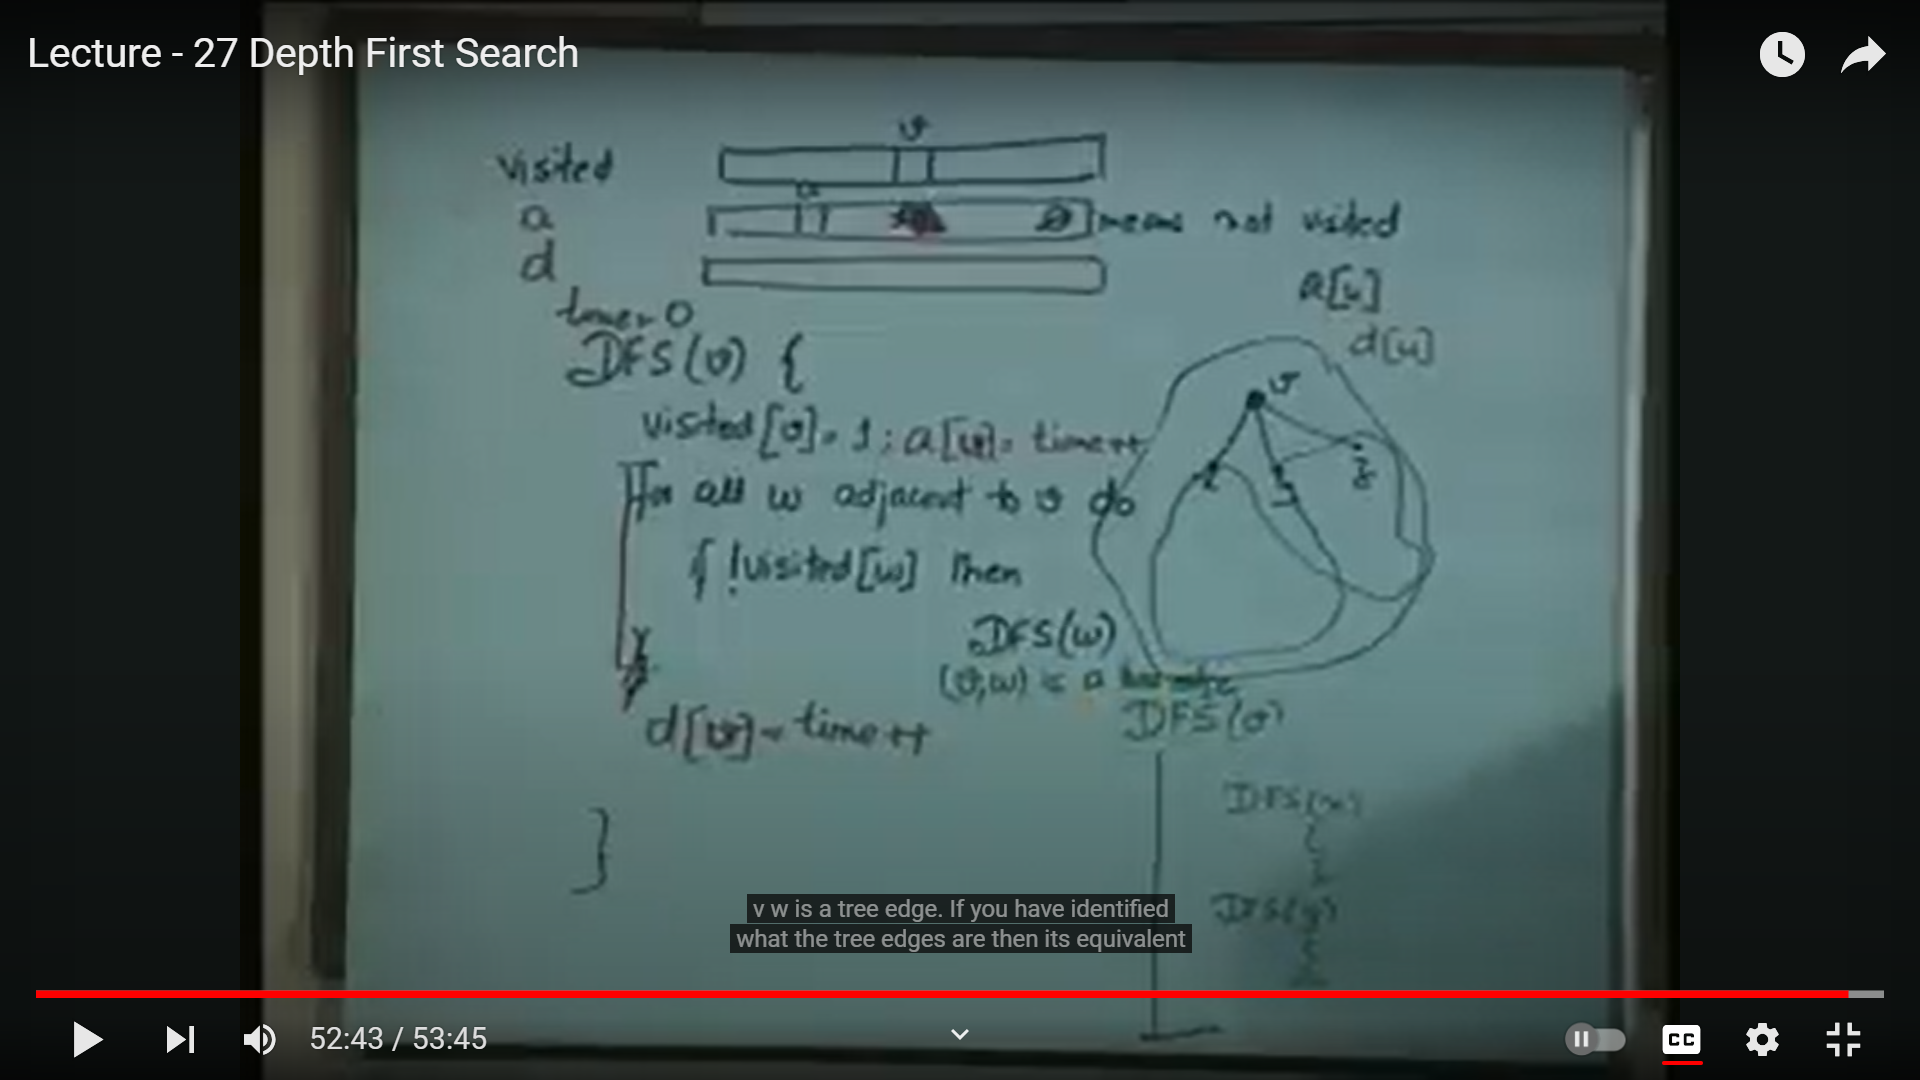 Lecture - 27 Depth First Search
visited
v
a
a
0 means not visited
d
a[u]
d[u]
time = 0
DFS(v) {
v
x
y
z
visited[v] = 1; a[v] = time++
For all w adjacent to v do
if !visited[w] then
DFS(w)
(v,w) is a tree edge
d[v] = time++
}
DFS(v)
DFS(x)
DFS(y)
v w is a tree edge. If you have identified
what the tree edges are then its equivalent
52:43 / 53:45
CC